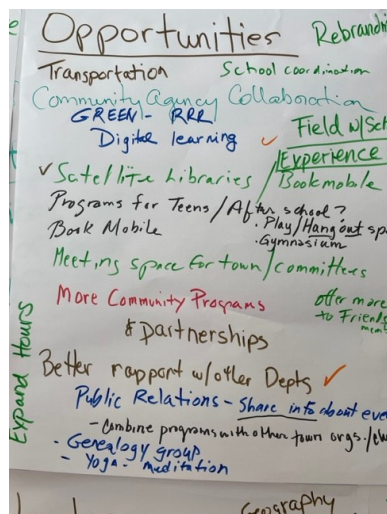 Opportunities
Transportation
School coordination
Community agency Collaboration
GREEN - RRR
Digital learning
Field w/
Experience
✓ Satellite Libraries / Bookmobile
Programs for Teens / After school?
Book Mobile
· Play/Hangout
· Gymnasium
Meeting space for town/committees
More Community Programs
& partnerships
offer more
to Friends
Better rapport w/other Depts
Expand Hours
Public Relations - Share info about
- Combine programs with other town orgs./
- Genealogy group
- Yoga - meditation
Geography